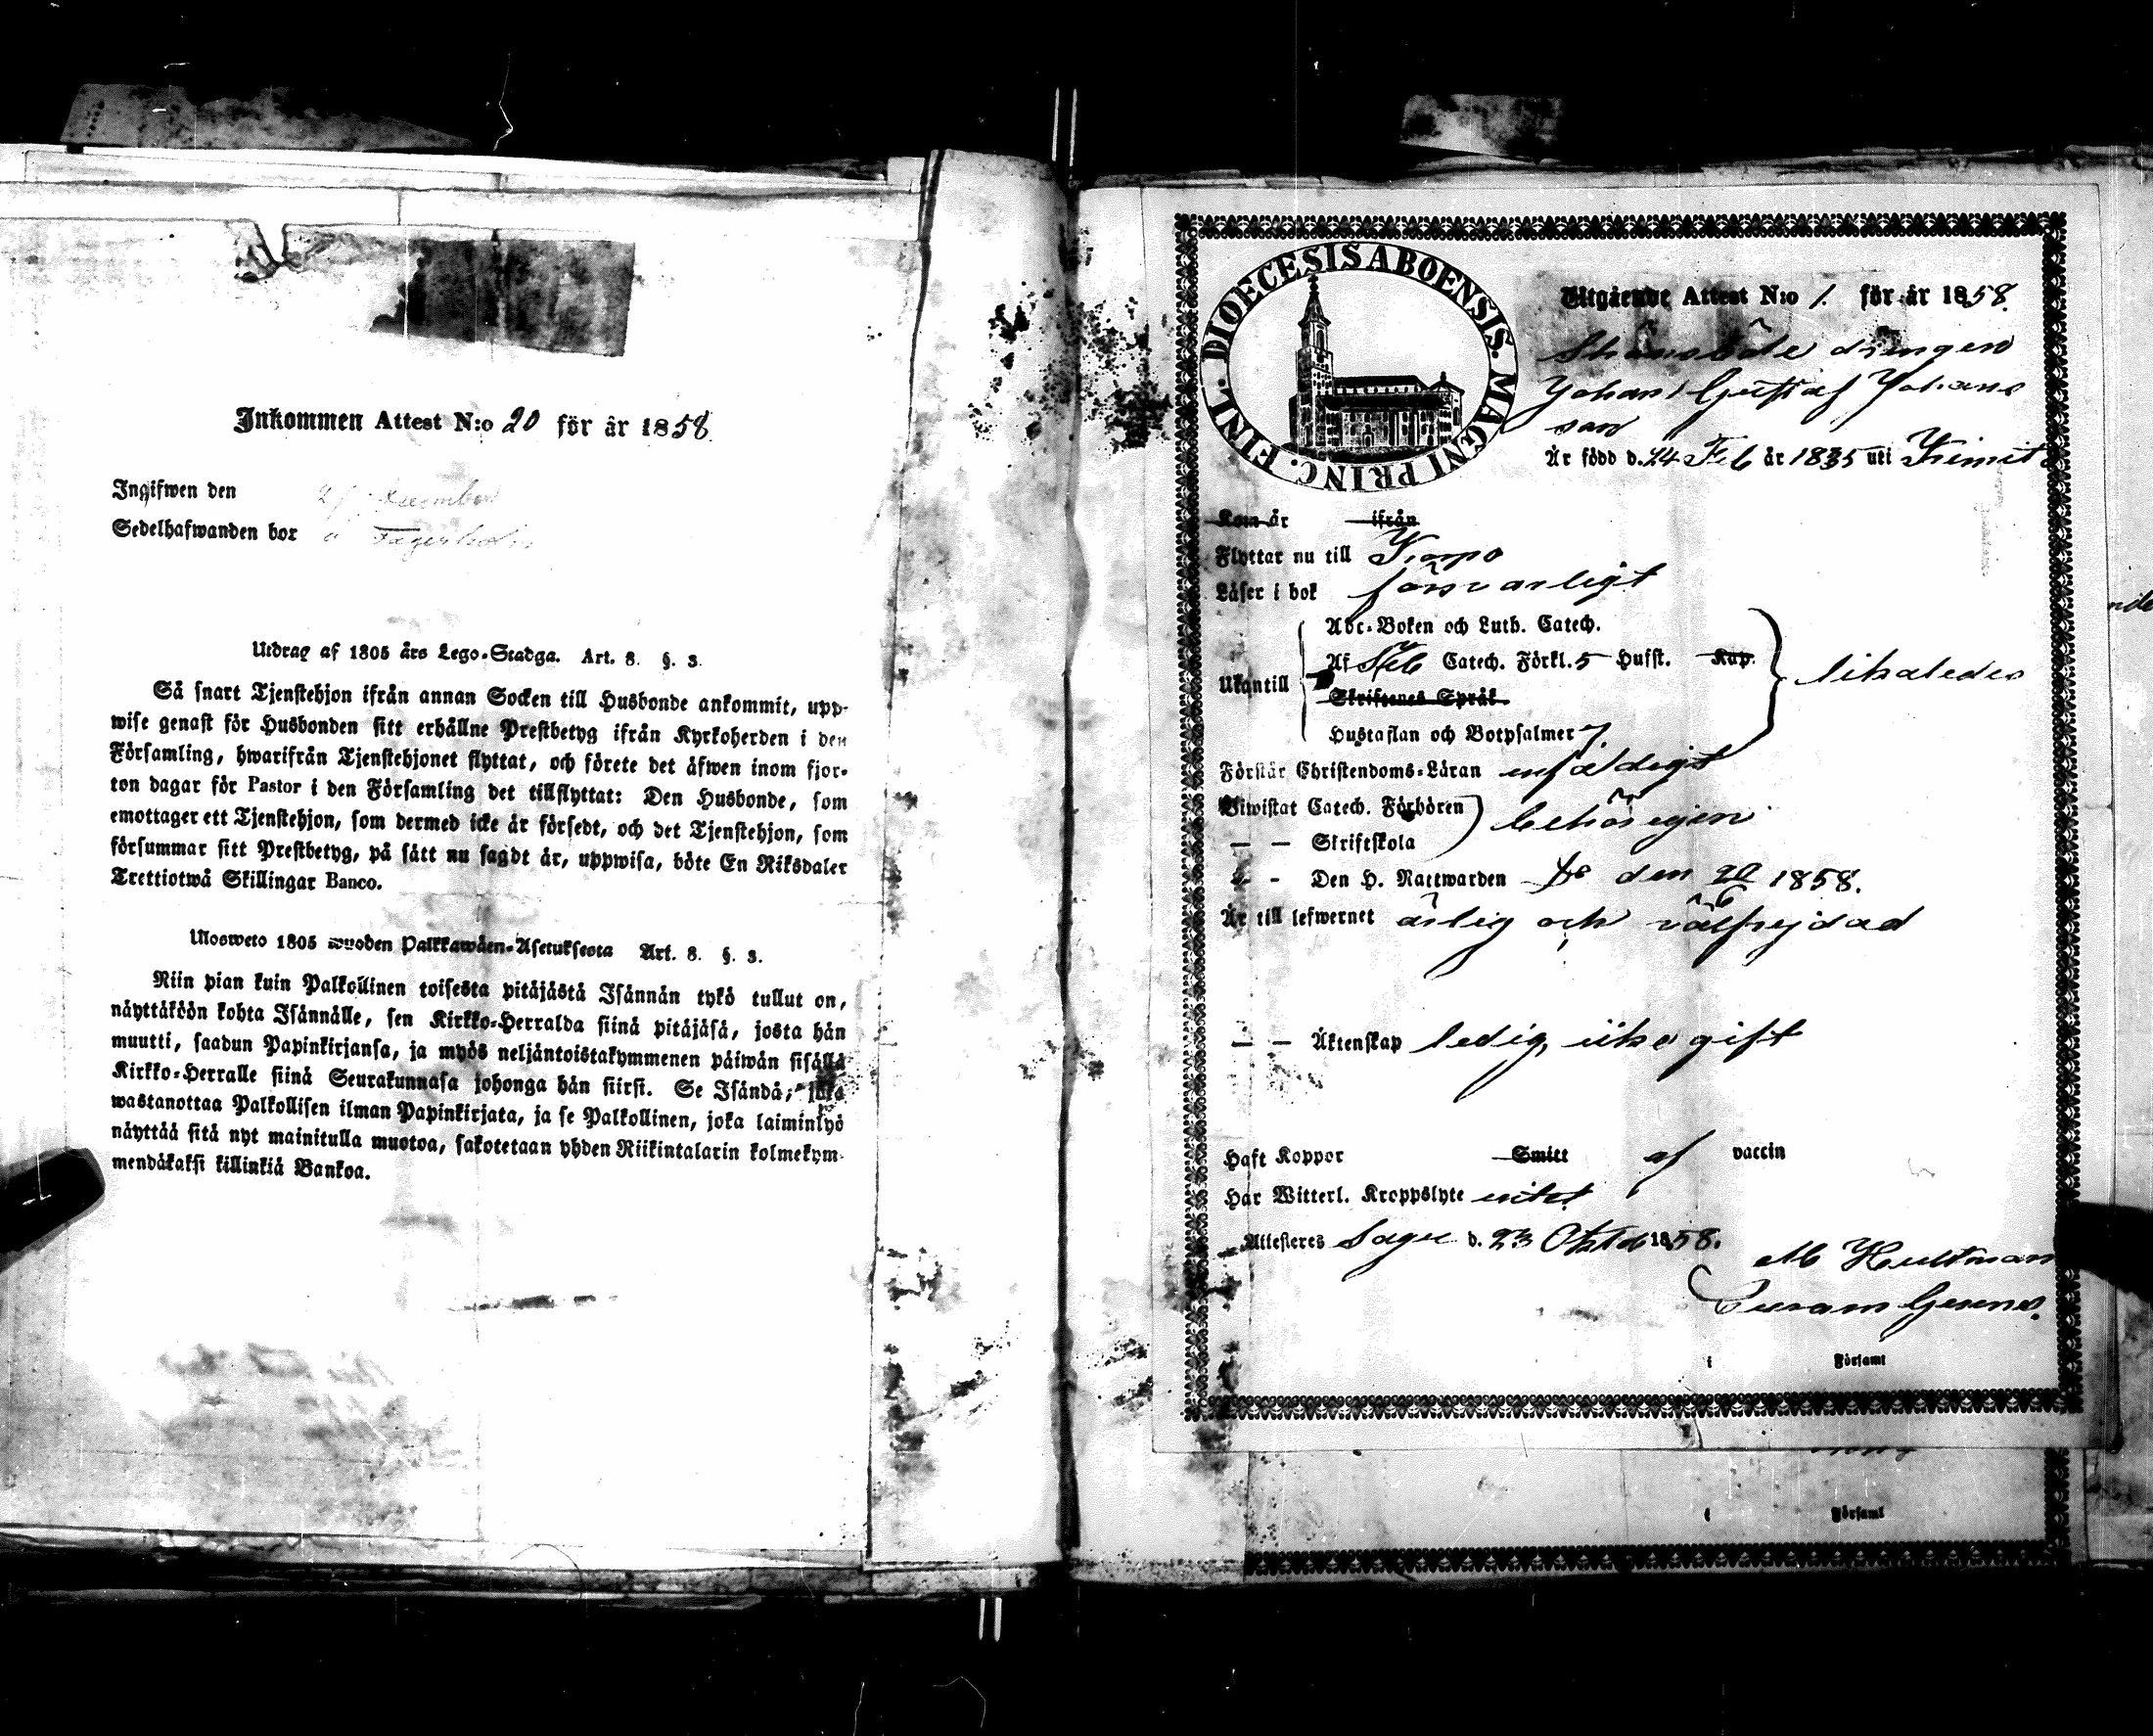 Inkommen Attest N:o 20 för år 1858.
Ingifwen den 2/ December
Sedelhafwanden bor å Fagerholm
Utdrag af 1805 års Lego-Stadga. Art. 8. §. 3.
Så snart Tjenstehjon ifrån annan Socken till Husbonde ankommit, upp-
wise genast för Husbonden sitt erhållne Prestbetyg ifrån Kyrkoherden i den
Församling, hwarifrån Tjenstehjonet flyttat, och förete det äfwen inom fjor-
ton dagar för Pastor i den Församling det tillflyttat: Den Husbonde, som
emottager ett Tjenstehjon, som dermed icke är försedt, och det Tjenstehjon, som
försummar sitt Prestbetyg, på sätt nu sagdt är, uppwisa, böte En Riksdaler
Trettiotwå Skillingar Banco.
Ulosweto 1805 wuoden Palkkawäen-Asetuksesta Art. 8. §. 3.
Niin pian kuin Palkollinen toisesta pitäjästä Isännän tykö tullut on,
näyttäköön kohta Isännälle, sen Kirkko-Herralda siinä pitäjäsä, josta hän
muutti, saadun Papinkirjansa, ja myös neljäntoistakymmenen päiwän sisällä
Kirkko-Herralle siinä Seurakunnasa johonga hän siirsi. Se Isändä, joka
wastanottaa Palkollisen ilman Papinkirjata, ja se Palkollinen, joka laiminlyö
näyttää sitä nyt mainitulla muotoa, sakotetaan yhden Riikintalarin kolmekym-
mendäkaksi killinkiä Bankoa.
DIOECESIS ABOENSIS. MAGNI PRINC. FINL.
Utgående Attest N:o 1. för år 1858.
drengen
Johan Gustaf Johans
son
Är född d. 24 Feb år 1835 uti Kimito
Kom år ifrån
Flyttar nu till Korpo
Läser i bok försvarligt
Abc-Boken och Luth. Catech.
Af Catech. Förkl. 5 Hufst. Kap.
Utantill
likaledes
Skriftenes Språk
Hustaflan och Botpsalmer
Förstår Christendoms-Läran enfaldigt
Biwistat Catech. Förhören
behörigen
— — Skriftskola
— - Den H. Nattwarden den 20 1858.
6
Är till lefwernet ärlig och välfrejdad
— — Äktenskap ledig, icke gift
Haft Koppor Smitt af vaccin
Har Witterl. Kroppslyte intet
Attesteres Sagu d. 23 Octob 1858.
Hultman
i Församl
i Församl